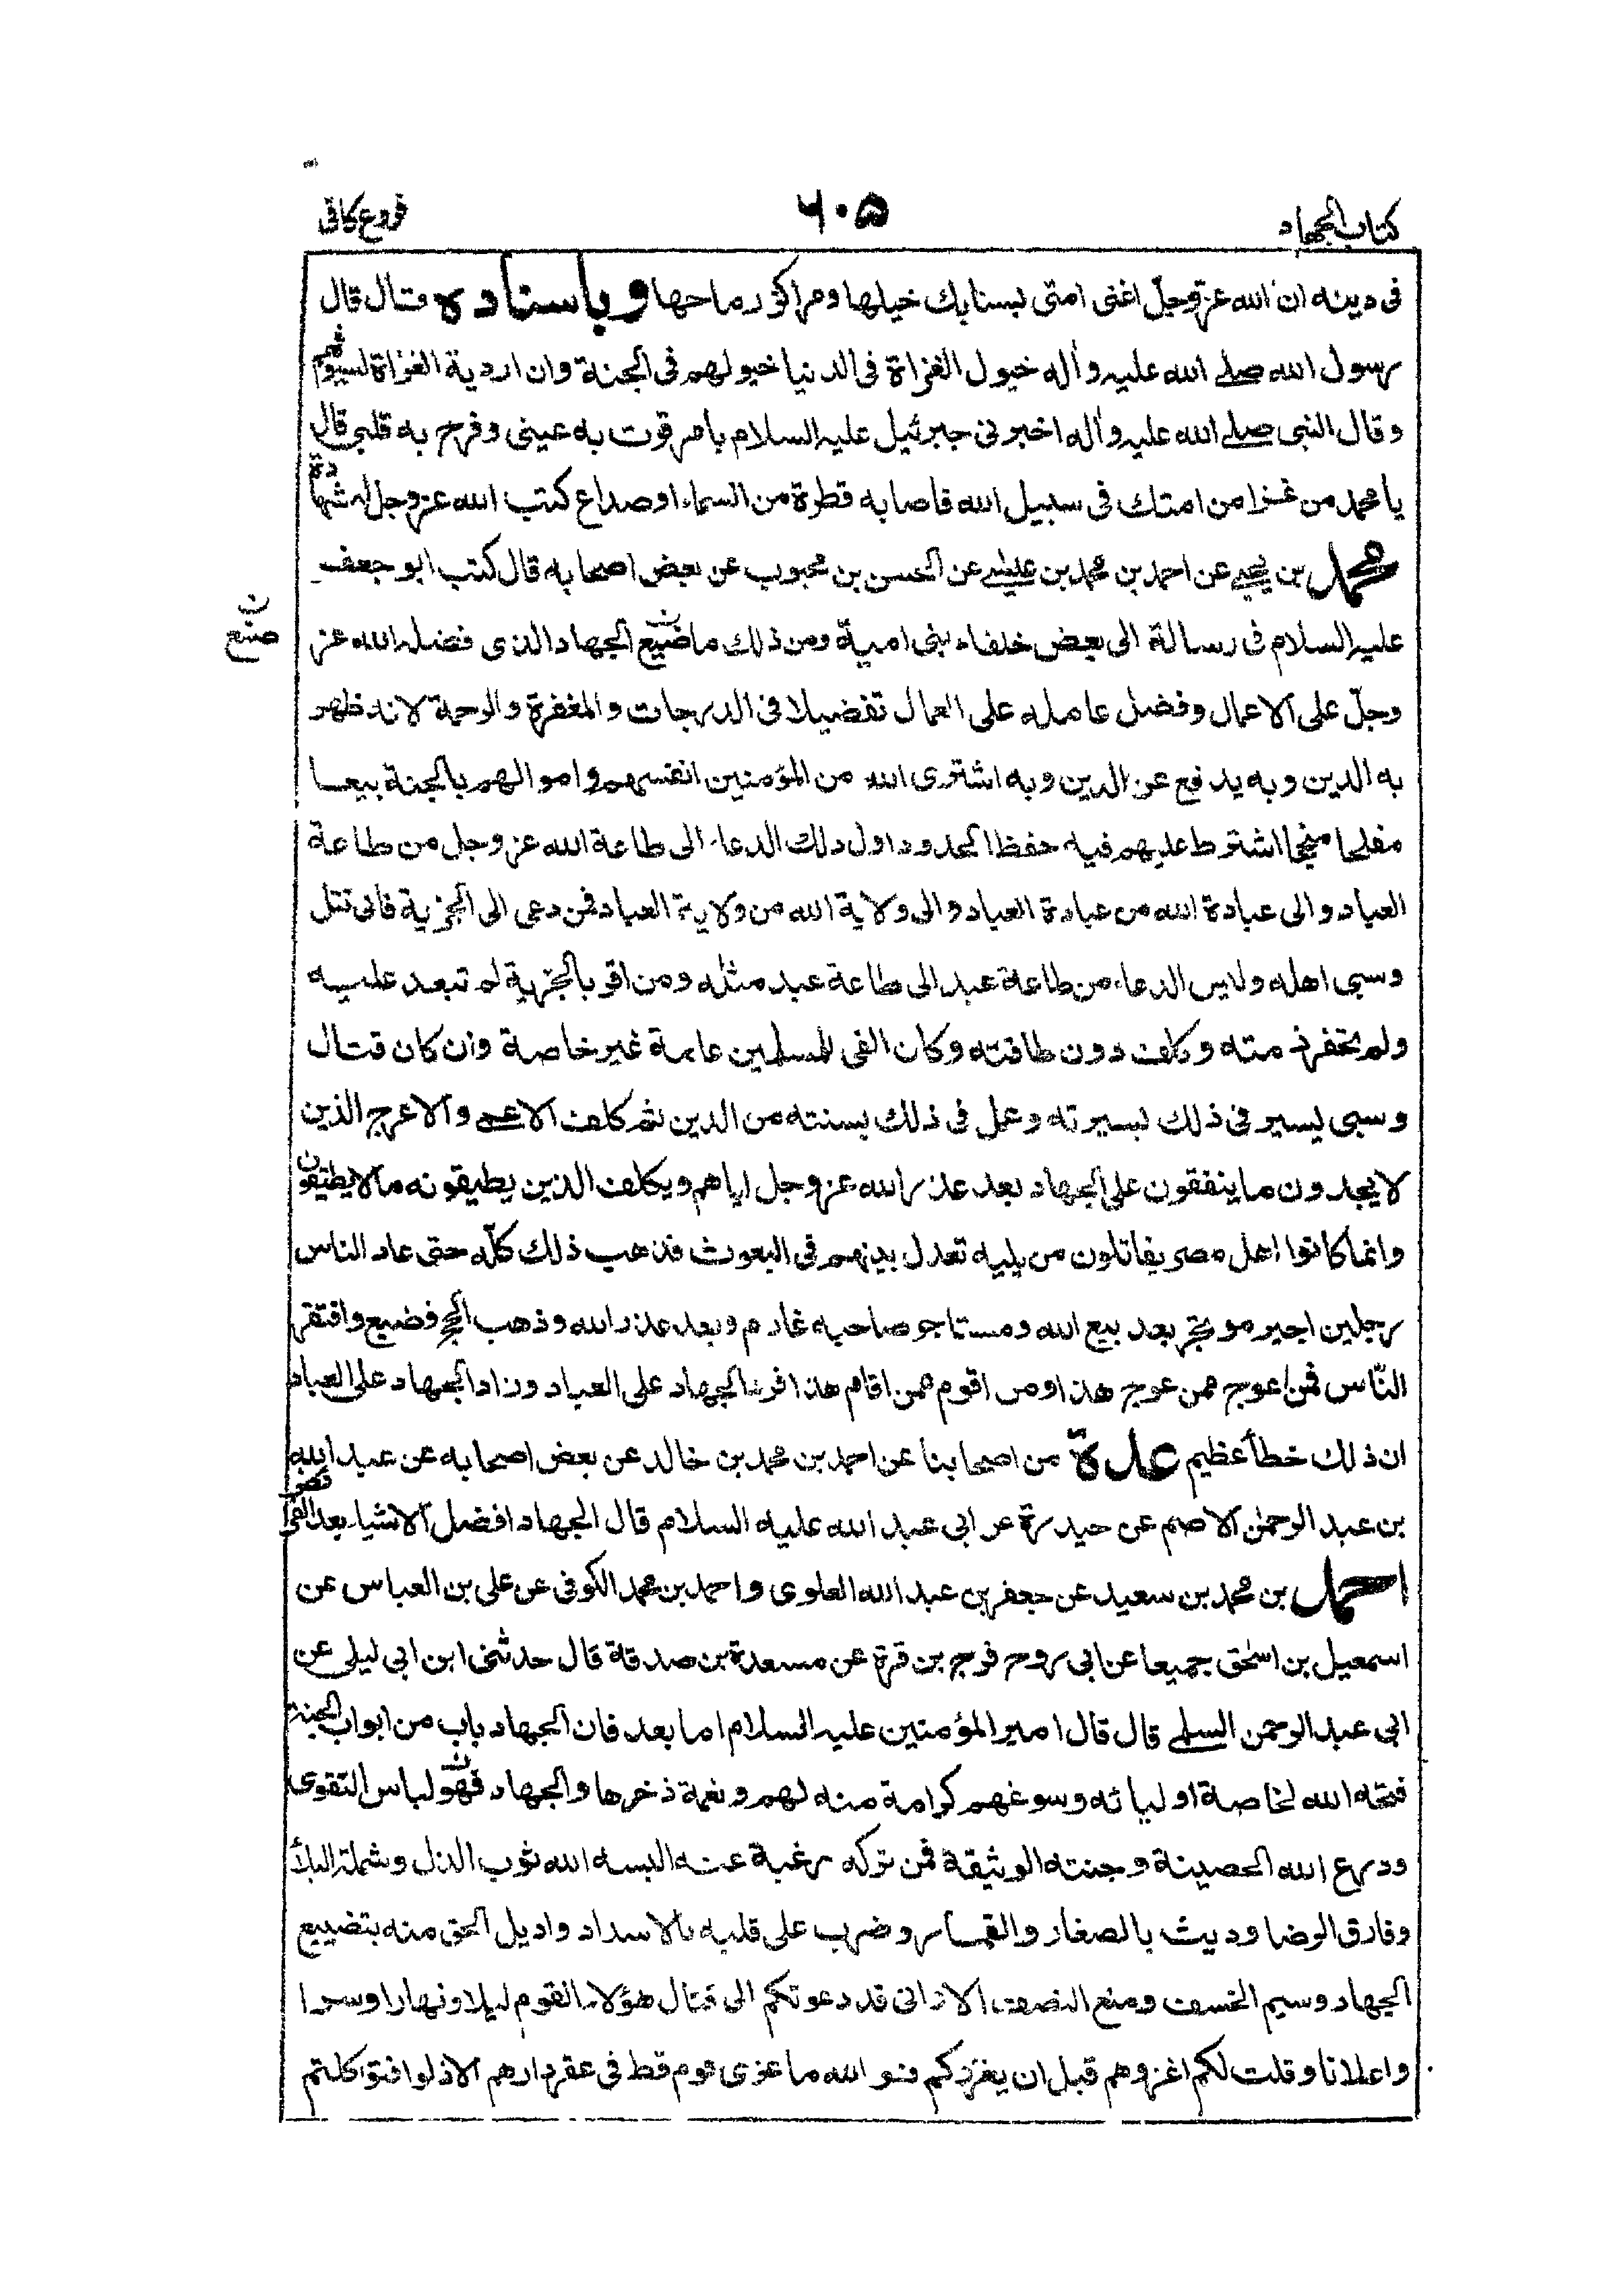 كتاب الجهاد
٦٠۵
فروع كافى
فى دينه ان الله عز وجلّ اغنى امتى بسنابك خيلها ومراكز رماحها وباسناده قال قال
رسول الله صلے الله عليه وأله خيول الغزاة فى الدنيا خيولهم فى الجنة وان اردية الغزاة لسيوفهم
وقال النبى صلے الله عليه وأله اخبرنى جبرئيل عليه السلام بامر قرت به عينى وفرح به قلبى قال
يا محمد من غزا من امتك فى سبيل الله فاصابه قطرة من السماء او صداع كتب الله عز وجل له شهادة
محمد بن يحيے عن احمد بن محمد بن عيسے عن الحسن بن محبوب عن بعض اصحابه قال كتب ابو جعفر
عليه السلام فى رسالة الى بعض خلفاء بنى امية ومن ذلك ما ضيع الجهاد الذى فضله الله عز
ن
صنع
وجلّ على الاعمال وفضل عامله على العمال تفضيلا فى الدرجات والمغفرة والرحمة لانه ظهر
به الدين وبه يدفع عن الدين وبه اشترى الله من المؤمنين انفسهم واموالهم بالجنة بيعا
مفلحا منجحا اشترط عليهم فيه حفظ الحدود اول ذلك الدعاء الى طاعة الله عز وجل من طاعة
العباد والى عبادة الله من عبادة العباد والى ولاية الله من ولاية العباد فمن دعى الى الجزية فابى قتل
وسبى اهله وليس الدعاء من طاعة عبد الى طاعة عبد مثله ومن اقر بالجزية لم تبعد عليه
ولم تخفر ذمته وكلف دون طاقته وكان الفى للمسلمين عامة غير خاصة وان كان قتال
وسبى يسير فى ذلك بسيرته وعمل فى ذلك بسنته من الدين ثم كلف الاعمے والاعرج الذين
لا يجدون ما ينفقون على الجهاد بعد عذر الله عز وجل اياهم ويكلف الذين يطيقونه ما لا يطيقون
وانما كانوا اهل مصر يقاتلون من يليه تعدل بينهم فى البعوث فذهب ذلك كلّه حتى عاد الناس
رجلين اجير موتجر بعد بيع الله ومستاجر صاحبه غارم وبعد عذر الله وذهب الحج فضيع وافتقر
النّاس فمن اعوج ممن عوج هذا ومن اقوم ممن اقام هذا فرد الجهاد على العباد وزاد الجهاد على العباد
ان ذلك خطأ عظيم عدة من اصحابنا عن احمد بن محمد بن خالد عن بعض اصحابه عن عبد الله
بن عبد الرحمن الاصم عن حيدرة عن ابى عبد الله عليه السلام قال الجهاد افضل الاشياء بعد الفرائض
احمد بن محمد بن سعيد عن جعفر بن عبد الله العلوى واحمد بن محمد الكوفى عن على بن العباس عن
اسمعيل بن اسحٰق جميعا عن ابى روح فرج بن قرة عن مسعدة بن صدقة قال حدثنى ابن ابى ليلى عن
ابى عبد الرحمن السلمے قال قال امير المؤمنين عليه السلام اما بعد فان الجهاد باب من ابواب الجنة
فتحه الله لخاصة اوليائه وسوغهم كرامة منه لهم ونعمة ذخرها والجهاد فهو لباس التقوى
ودرع الله الحصينة وجنته الوثيقة فمن تركه رغبة عنه البسه الله ثوب الذل وشملة البلأ
وفارق الرضا وديث بالصغار والقماءة وضرب على قلبه بالاسداد واديل الحق منه بتضييع
الجهاد وسيم الخسف ومنع النصف الا وانى قد دعوتكم الى قتال هؤلاء القوم ليلا ونهارا وسرا
واعلانا وقلت لكم اغزوهم قبل ان يغزوكم فو الله ما غزى قوم قط فى عقر دارهم الا ذلوا فتواكلتم